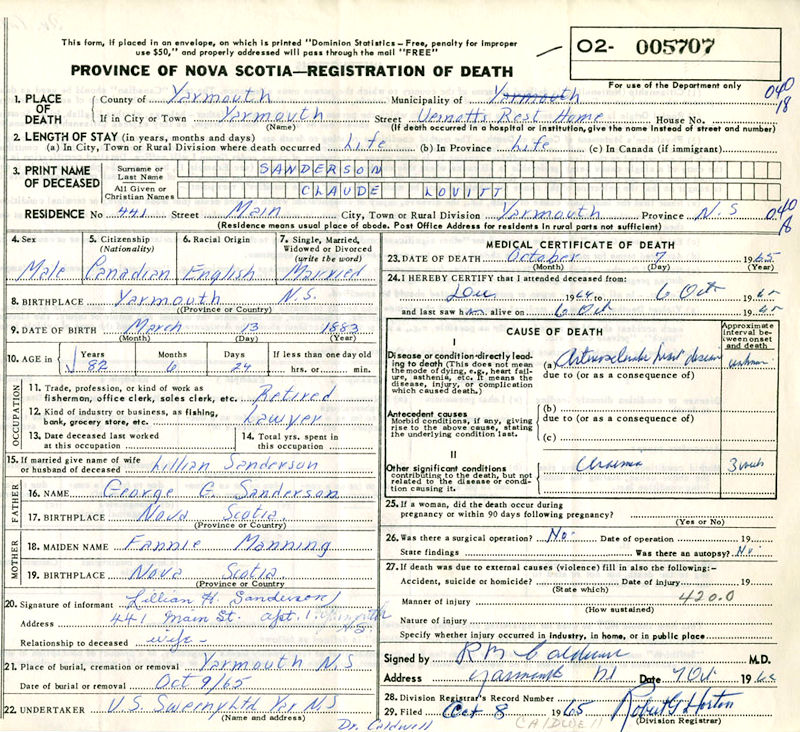 This form, if placed in an envelope, on which is printed "Dominion Statistics – Free, penalty for improper
use $50," and properly addressed will pass through the mail "FREE"
02- 005707
PROVINCE OF NOVA SCOTIA—REGISTRATION OF DEATH
For use of the Department only
040
18
1. PLACE OF DEATH
County of Yarmouth Municipality of Yarmouth
If in City or Town Yarmouth Street Vernotts Rest Home House No.
(Name) (If death occurred in a hospital or institution, give the name instead of street and number)
2. LENGTH OF STAY (in years, months and days)
(a) In City, Town or Rural Division where death occurred Life (b) In Province Life (c) In Canada (if immigrant)
3. PRINT NAME OF DECEASED
Surname or Last Name SANDERSON
All Given or Christian Names CLAUDE LOVITT
RESIDENCE No 441 Street Main City, Town or Rural Division Yarmouth Province N.S
040
18
(Residence means usual place of abode. Post Office Address for residents in rural parts not sufficient)
4. Sex
Male
5. Citizenship (Nationality)
Canadian
6. Racial Origin
English
7. Single, Married, Widowed or Divorced (write the word)
Married
8. BIRTHPLACE Yarmouth N.S.
(Province or Country)
9. DATE OF BIRTH March 13 1883
(Month) (Day) (Year)
10. AGE in Years Months Days If less than one day old
82 6 24 hrs. or min.
OCCUPATION
11. Trade, profession, or kind of work as
fisherman, office clerk, sales clerk, etc. Retired
12. Kind of industry or business, as fishing,
bank, grocery store, etc. Lawyer
13. Date deceased last worked
at this occupation
14. Total yrs. spent in
this occupation
15. If married give name of wife
or husband of deceased Lillian Sanderson
FATHER
16. NAME George G. Sanderson
17. BIRTHPLACE Nova Scotia
(Province or Country)
MOTHER
18. MAIDEN NAME Fannie Manning
19. BIRTHPLACE Nova Scotia
(Province or Country)
20. Signature of informant Lillian H. Sanderson
Address 441 Main St. apt. 1. Yarmouth N.S
Relationship to deceased wife
21. Place of burial, cremation or removal Yarmouth N.S
Date of burial or removal Oct 9/65
22. UNDERTAKER V.S. Sweeny Ltd Yar N.S
(Name and address)
Dr. Caldwell
MEDICAL CERTIFICATE OF DEATH
23. DATE OF DEATH October 7 1965
(Month) (Day) (Year)
24. I HEREBY CERTIFY that I attended deceased from:
1964 to 6 Oct 1965
and last saw him alive on 6 Oct 1965
CAUSE OF DEATH
Approximate interval between onset and death
I
Disease or condition directly leading to death (This does not mean the mode of dying, e.g., heart failure, asthenia, etc. It means the disease, injury, or complication which caused death.)
(a) Arteriosclerotic heart disease unknown
due to (or as a consequence of)
Antecedent causes
Morbid conditions, if any, giving rise to the above cause, stating the underlying condition last.
(b)
due to (or as a consequence of)
(c)
II
Other significant conditions
contributing to the death, but not related to the disease or condition causing it.
Uraemia 3 weeks
25. If a woman, did the death occur during
pregnancy or within 90 days following pregnancy?
(Yes or No)
26. Was there a surgical operation? No. Date of operation 19
State findings Was there an autopsy? No.
27. If death was due to external causes (violence) fill in also the following:-
Accident, suicide or homicide? Date of injury 19
(State which)
Manner of injury 420.0
(How sustained)
Nature of injury
Specify whether injury occurred in industry, in home, or in public place
Signed by R M Caldwell M.D.
Address Yarmouth NS Date 7 Oct 1965
28. Division Registrar's Record Number
29. Filed Oct 8 1965 Robert G Horton
(Division Registrar)
CALDWELL